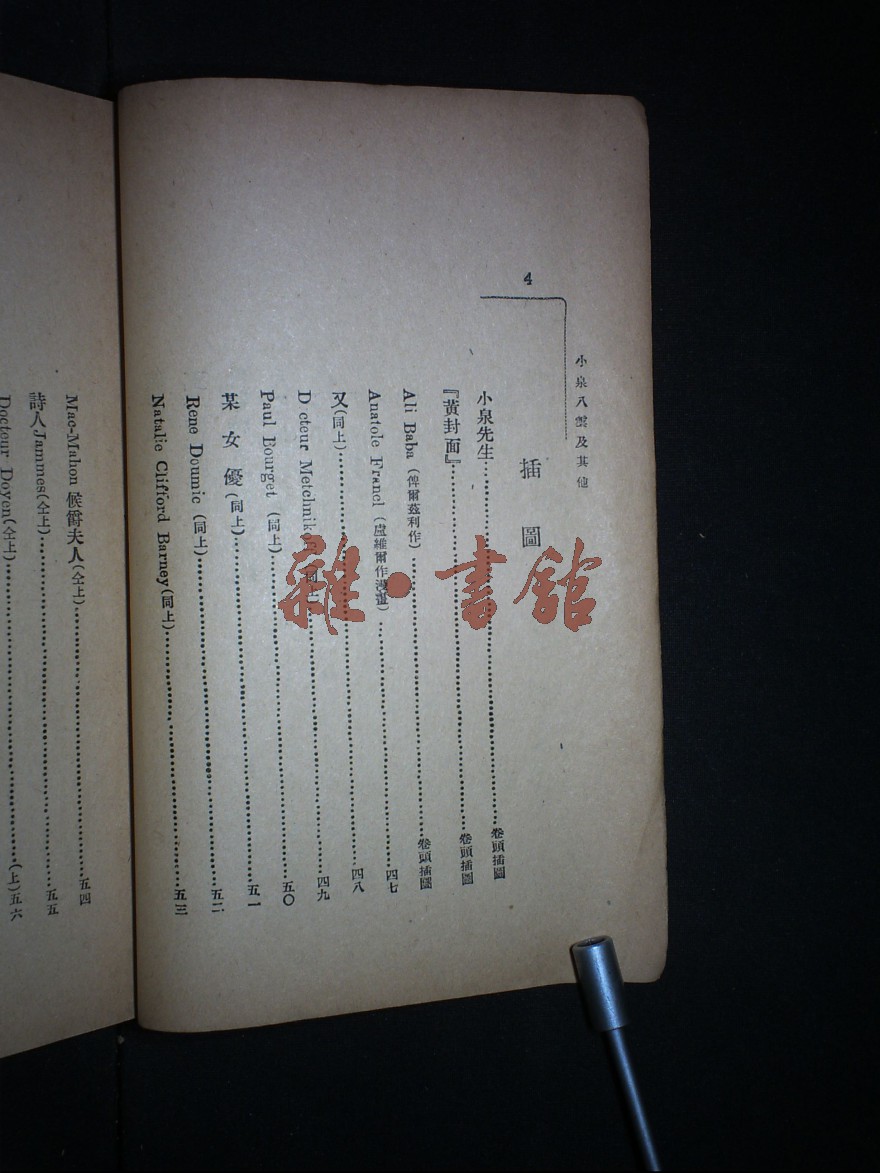 4
小泉八雲及其他
插圖
小泉先生……卷頭插圖
『黃封面』……卷頭插圖
Ali Baba (俾爾茲利作)……卷頭插圖
Anatole Francl (盧維爾作漫畫)……四七
又(同上)……四八
D cteur Metchnik (同上)……四九
Paul Bourget (同上)……五〇
某女優(同上)……五一
Rene Doumic (同上)……五二
Natalie Clifford Barney (同上)……五三
Mac-Mahon 候爵夫人(仝上)……五四
詩人Jammes(仝上)……五五
Docteur Doyen(仝上)……(上)五六
雜·書舘